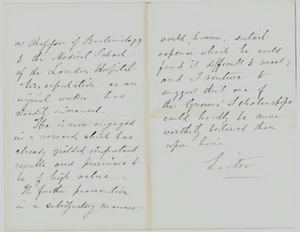 as Professor of Bacteriology
to the Medical School
of the London Hospital
his reputation as an
original worker has
steadily increased.
He is now engaged
in a research which has
already yielded important
results and promises to
be of high value.
Its further prosecution
in a satisfactory manner
would, however, entail
expense which he would
find it difficult to meet;
and I venture to
suggest that one of
the Grocers' Scholarships
could hardly be more
worthily bestowed than
upon him.
Lister